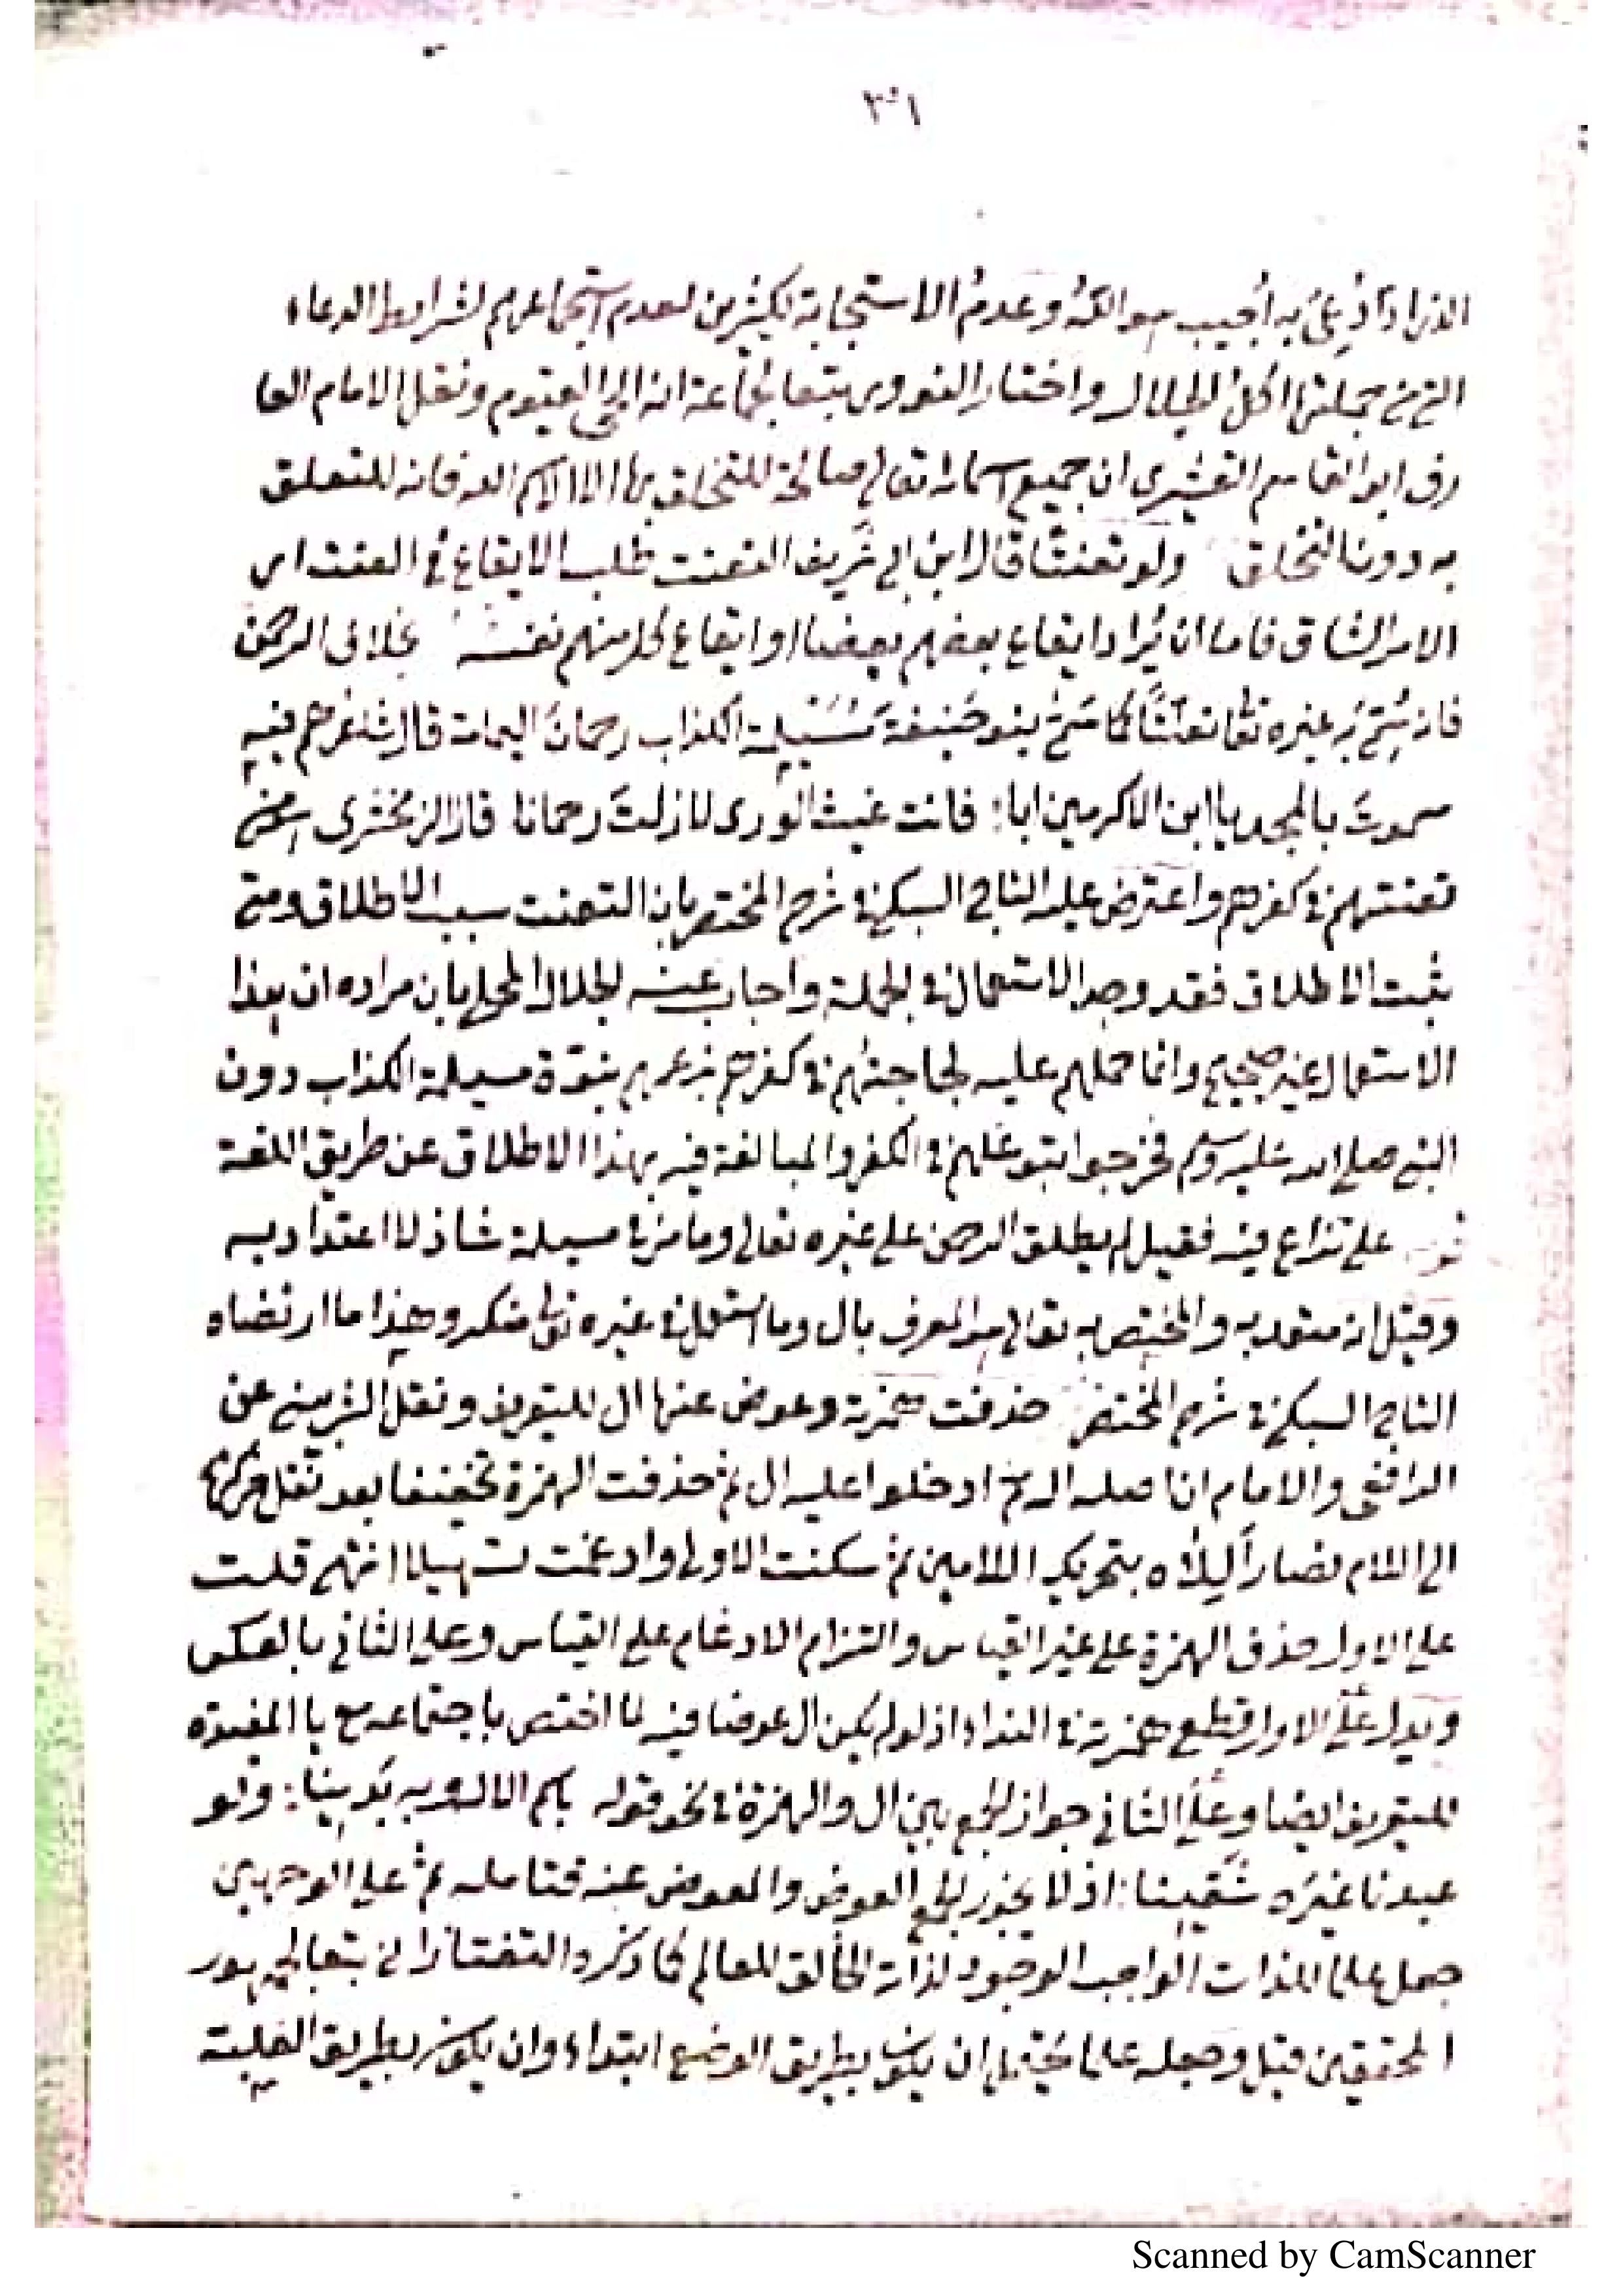 ٣٠١
الذي اذا دُعِيَ به أُجيب هو الله وعدم الاستجابة لكثيرين لعدم استجماعهم لشرايط الدعاء
التي من جملتها اكل الحلال واختار النووي تبعا لجماعة انه الحي القيوم ونقل الامام العا
رف ابو القاسم القشيري ان جميع اسمائه تعالى صالحة للتخلق بها الا الاسم الله فانه للتعلق
به دون التخلق ولو تعنتًا قال ابن ابي شريف التعنت طلب الايقاع في العنت اي
الامر الشاق فاما ان يُراد ايقاع بعضهم بعضا او ايقاع كل منهم نفسه بخلاف الرحمن
فانه سُمِّيَ به غيره تعالى تعنتًا كما سَمَّى بنو حَنيفةَ مُسَيْلِمة الكذاب رحمانَ اليمامة قال شاعرهم فيه
سموتَ بالمجد يا ابن الاكرمين ابا: فانت غيث الورى لا زلتَ رحمانا قال الزمخشري
تعنتهم في كفرهم واعترض عليه التاج السبكي في شرح المختصر بان التعنت سبب الاطلاق ومتى
ثبت الاطلاق فقد وجد الاستعمال في الجملة واجاب عنه الجلال المحلي بان مراده ان هذا
الاستعمال غير صحيح وانما حملهم عليه لجاجتهم في كفرهم بزعمهم نبوّة مسيلمة الكذاب دون
النبي صلى الله عليه وسلم فخرجوا بتوغلهم في الكفر والمبالغة فيه بهذا الاطلاق عن طريق اللغة
على نزاع فيه فقيل لم يطلق الرحمن على غيره تعالى وما مرّ في مسيلمة شاذ لا اعتداد به
وقيل انه معتد به والمختص به تعالى هو المعرف بال وما استعمل في غيره تعالى منكر وهذا ما ارتضاه
التاج السبكي في شرح المختصر حذفت همزته وعوض عنها ال للتعريف ونقل الشربيني عن
الرافعي والامام ان اصله اله ثم ادخلوا عليه ال ثم حذفت الهمزة تخفيفا بعد نقل حركتها
الى اللام فصار أَلِلَاه بتحريك اللامين ثم سكنت الاولى وادغمت تسهيلا انتهى قلت
على الاول حذف الهمزة على غير القياس والتزام الادغام على القياس وعلى الثاني بالعكس
ويدل على الاول قطع همزته في النداء اذ لو لم يكن ال عوضا فيه لما اختص باجتماعه مع يا المفيدة
للتعريف ايضا وعلى الثاني جواز الجمع بين ال والهمزة في نحو قوله باسم الاله وبه بَدِينا: ولو
عبدنا غيرَه شَقِينا: اذ لا يجوز الجمع العوض والمعوض عنه فتامله ثم على الوجهين
جعل علما للذات الواجب الوجود لذاته الخالق للعالم كما ذكره التفتازاني تبعا لجمهور
المحققين قيل وجعله علما يحتمل ان يكون بطريق الوضع ابتداء وان يكون بطريق الغلبة
Scanned by CamScanner